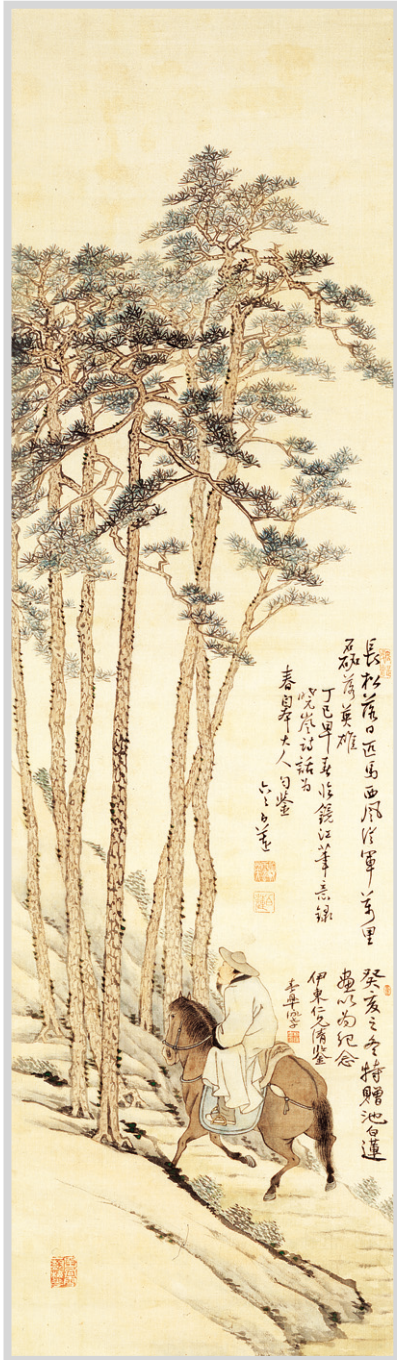 長松落日匹馬西風從軍萬里
磊落英雄
丁巳早春臨鏡江筆意錄
曉嵐詩話为
春皋大人勻鑒
癸亥之冬特贈池白蓮
畫以为紀念
伊東仁兄清鑒